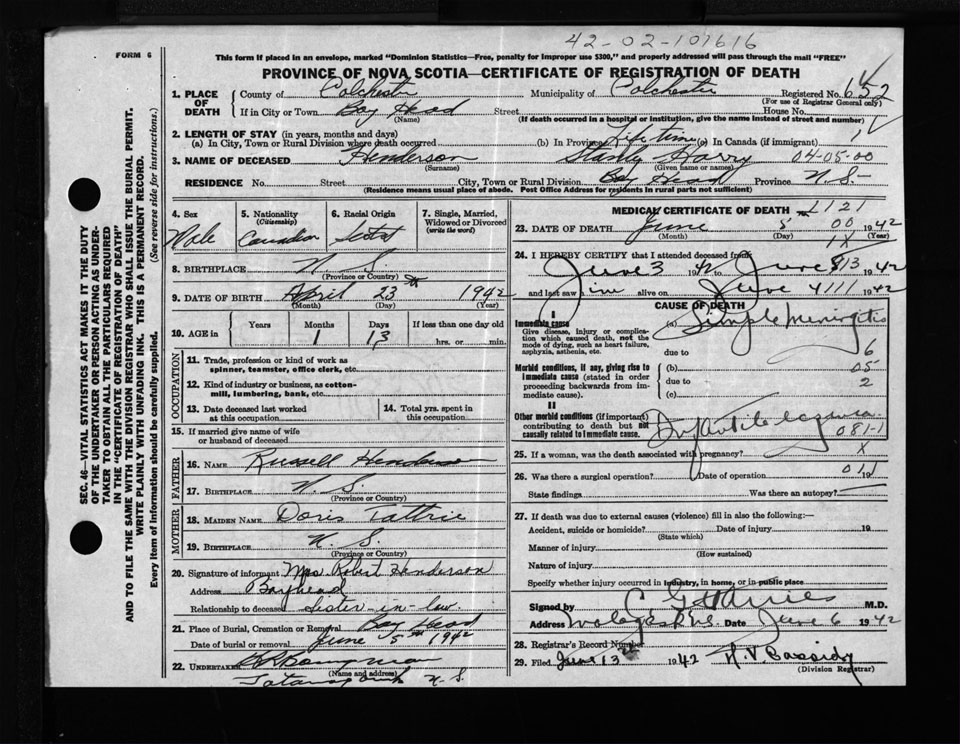 42-02-101616
FORM 6
This form if placed in an envelope, marked "Dominion Statistics—Free, penalty for improper use $300," and properly addressed will pass through the mail "FREE"
PROVINCE OF NOVA SCOTIA—CERTIFICATE OF REGISTRATION OF DEATH
1. PLACE OF DEATH
County of Colchester Municipality of Colchester Registered No. 652
(For use of Registrar General only)
If in City or Town Bay Head Street House No.
(Name) (If death occurred in a hospital or institution, give the name instead of street and number)
2. LENGTH OF STAY (in years, months and days)
(a) In City, Town or Rural Division where death occurred (b) In Province Life time (c) In Canada (if immigrant)
3. NAME OF DECEASED Henderson Stanly Harry 04-05-00
(Surname) (Given name or names)
RESIDENCE No. Street City, Town or Rural Division Bay Head Province N.S.
(Residence means usual place of abode. Post Office Address for residents in rural parts not sufficient)
4. Sex Male
5. Nationality (Citizenship) Canadian
6. Racial Origin Scotch
7. Single, Married, Widowed or Divorced (write the word)
8. BIRTHPLACE N. S.
(Province or Country)
9. DATE OF BIRTH April 23 1942
(Month) (Day) (Year)
10. AGE in Years Months Days If less than one day old
1 13 hrs. or min.
OCCUPATION
11. Trade, profession or kind of work as spinner, teamster, office clerk, etc.
12. Kind of industry or business, as cotton-mill, lumbering, bank, etc.
13. Date deceased last worked at this occupation
14. Total yrs. spent in this occupation
15. If married give name of wife or husband of deceased
FATHER
16. NAME Russell Henderson
17. BIRTHPLACE N. S.
(Province or Country)
MOTHER
18. MAIDEN NAME Doris Tattrie
19. BIRTHPLACE N. S.
(Province or Country)
20. Signature of informant Mrs Robert Henderson
Address Bayhead
Relationship to deceased Sister-in-law.
21. Place of Burial, Cremation or Removal Bay Head
Date of burial or removal June 5th 1942
22. UNDERTAKER
(Name and address)
N. S.
MEDICAL CERTIFICATE OF DEATH
L121
23. DATE OF DEATH June 5 00 1942
(Month) (Day) (Year)
1X
24. I HEREBY CERTIFY that I attended deceased from
June 3 1942 June 1942
and last saw him alive on June 4 1942
CAUSE OF DEATH
I
Immediate cause
Give disease, injury or complication which caused death, not the mode of dying, such as heart failure, asphyxia, asthenia, etc.
(a) Simple Meningitis
due to 6
Morbid conditions, if any, giving rise to immediate cause (stated in order proceeding backwards from immediate cause).
(b) 05
due to 2
(c)
II
Other morbid conditions (if important) contributing to death but not causally related to immediate cause.
Infantile eczema
081-1
25. If a woman, was the death associated with pregnancy? X
26. Was there a surgical operation? Date of operation 01 19
State findings Was there an autopsy?
27. If death was due to external causes (violence) fill in also the following:—
Accident, suicide or homicide? Date of injury 19
(State which)
Manner of injury
(How sustained)
Nature of injury
Specify whether injury occurred in industry, in home, or in public place
Signed by M.D.
Address Date June 6 1942
28. Registrar's Record Number
29. Filed June 13 1942 H.V. Cassidy
(Division Registrar)
SEC. 46—VITAL STATISTICS ACT MAKES IT THE DUTY OF THE UNDERTAKER OR PERSON ACTING AS UNDERTAKER TO OBTAIN ALL THE PARTICULARS REQUIRED IN THE "CERTIFICATE OF REGISTRATION OF DEATH" AND TO FILE THE SAME WITH THE DIVISION REGISTRAR WHO SHALL ISSUE THE BURIAL PERMIT.
WRITE PLAINLY WITH UNFADING INK. THIS IS A PERMANENT RECORD.
Every item of information should be carefully supplied. (See reverse side for instructions.)